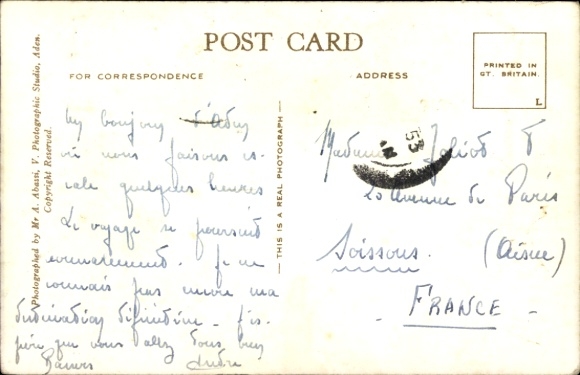 POST CARD
FOR CORRESPONDENCE
ADDRESS
PRINTED IN
GT. BRITAIN.
L
Photographed by Mr A. Abassi, V. Photographic Studio, Aden.
Copyright Reserved.
THIS IS A REAL PHOTOGRAPH
bonjour d'Aden
où nous faisons es-
cale quelques heures
Le voyage se poursuit
normalement. Je ne
connais pas encore ma
destination définitive. J'es-
père que vous allez tous bien
Baisers André
Madame Joliot
20 avenue de Paris
Soissons. (Aisne)
FRANCE
53